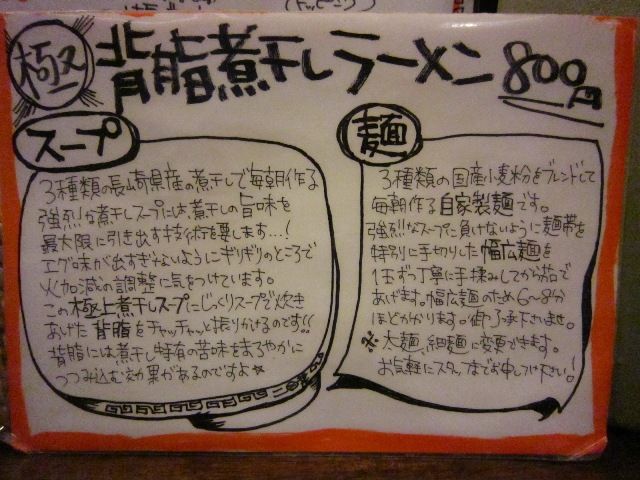 (トッピング)
極 背脂煮干しラーメン 800円
スープ
3種類の長崎県産の煮干しで毎朝作る
強烈な煮干しスープには、煮干しの旨味を
最大限に引き出す技術を要します…!
エグ味が出すぎないようにギリギリのところで
火加減の調整に気をつけています。
この極上煮干しスープにじっくりスープで炊き
あげた背脂をチャッチャッと振りかけるのです!!
背脂には煮干し特有の苦味をまろやかに
つつみ込む効果があるのですよ☆
麺
3種類の国産小麦粉をブレンドして
毎朝作る自家製麺です。
強烈なスープに負けないように麺帯を
特別に手切りした幅広麺を
1玉ずつ丁寧に手揉みしてから茹で
あげます。幅広麺のため6〜8分
ほどかかります。御了承下さいませ。
※太麺、細麺に変更できます。
お気軽にスタッフまでお申し付け下さい!